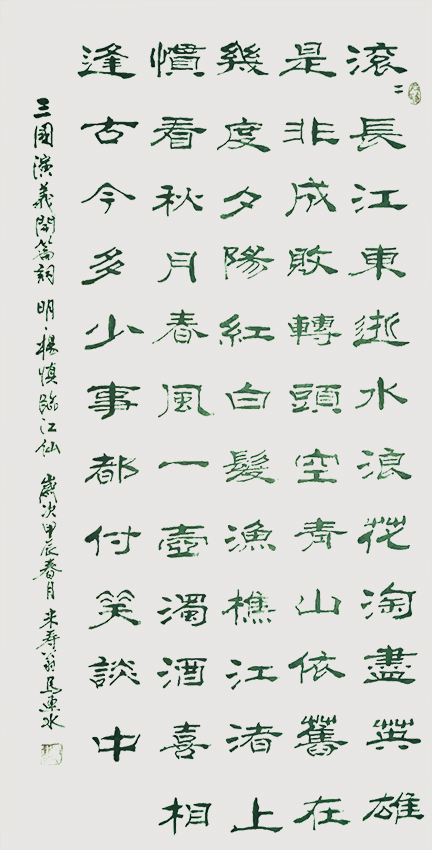 滚〻長江東逝水浪花淘盡英雄
是非成敗轉頭空青山依舊在
幾度夕陽紅白髮漁樵江渚上
慣看秋月春風一壺濁酒喜相
逢古今多少事都付笑談中
三國演義開篇詞 明·楊慎臨江仙 歲次甲辰春月 米壽翁